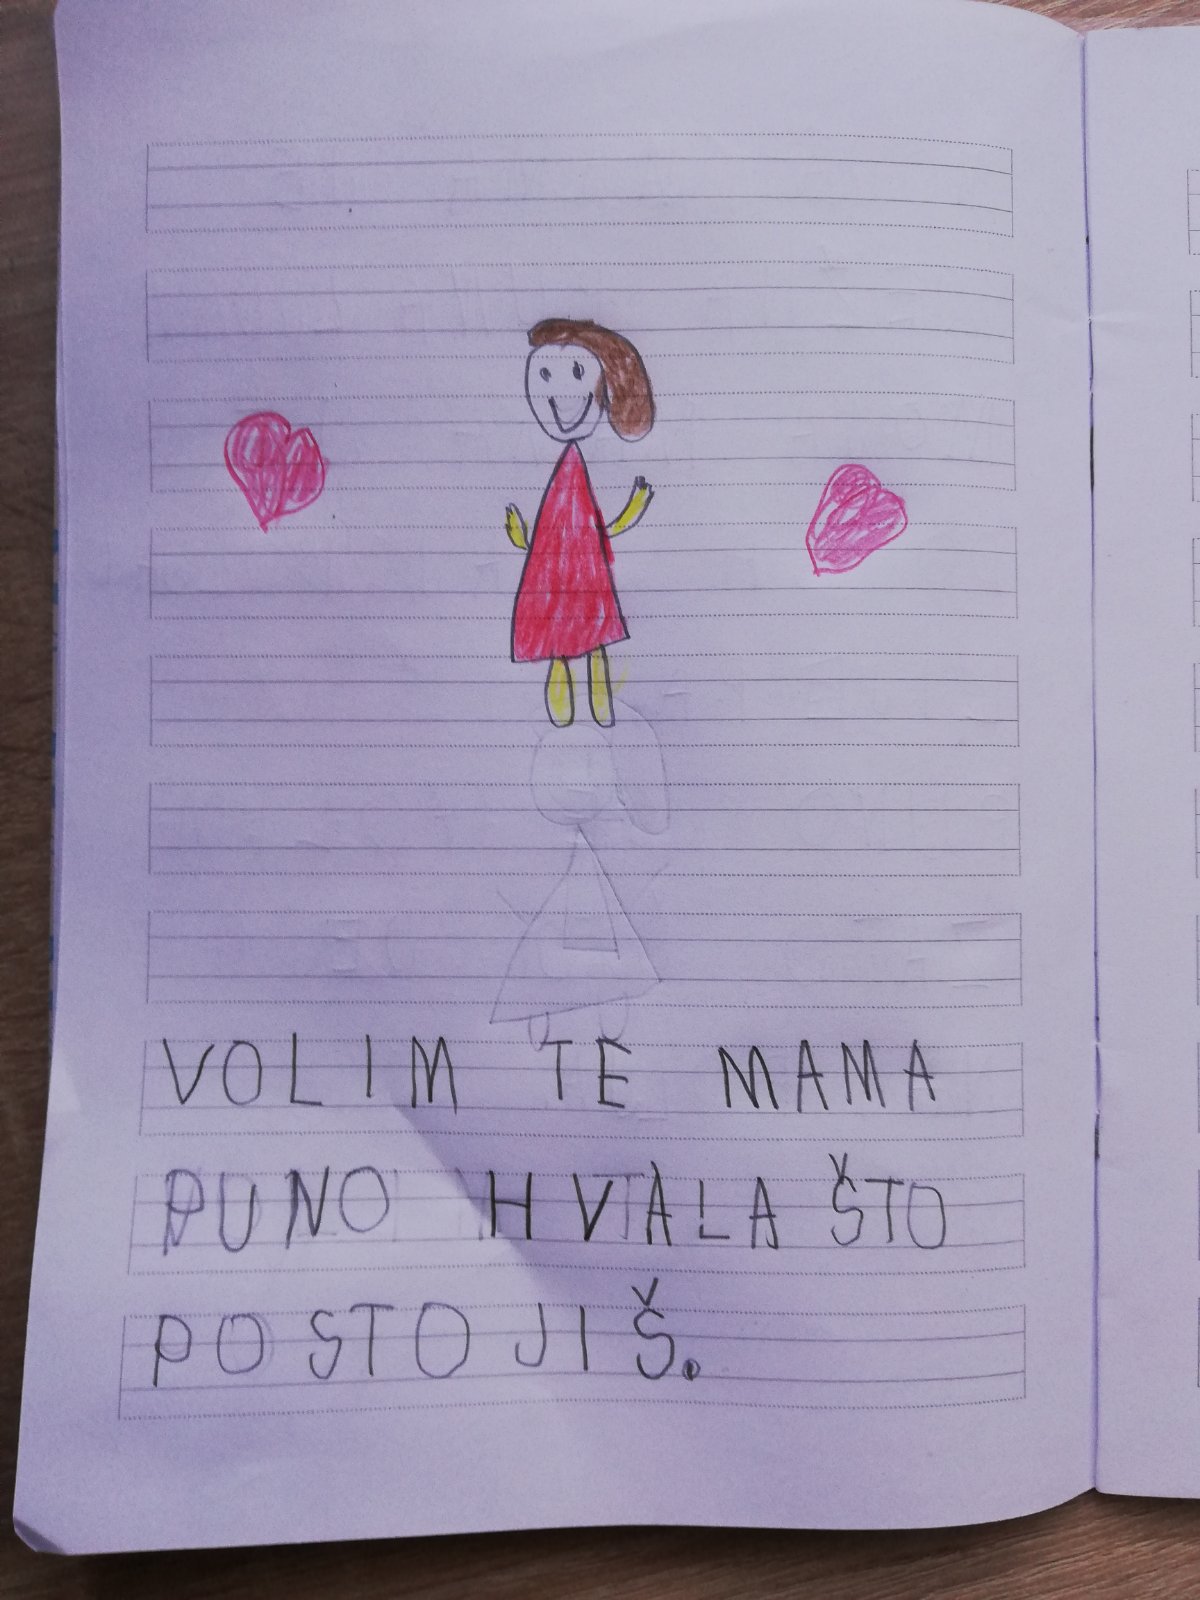 VOLIM TE MAMA
PUNO HVALA ŠTO
POSTOJIŠ.